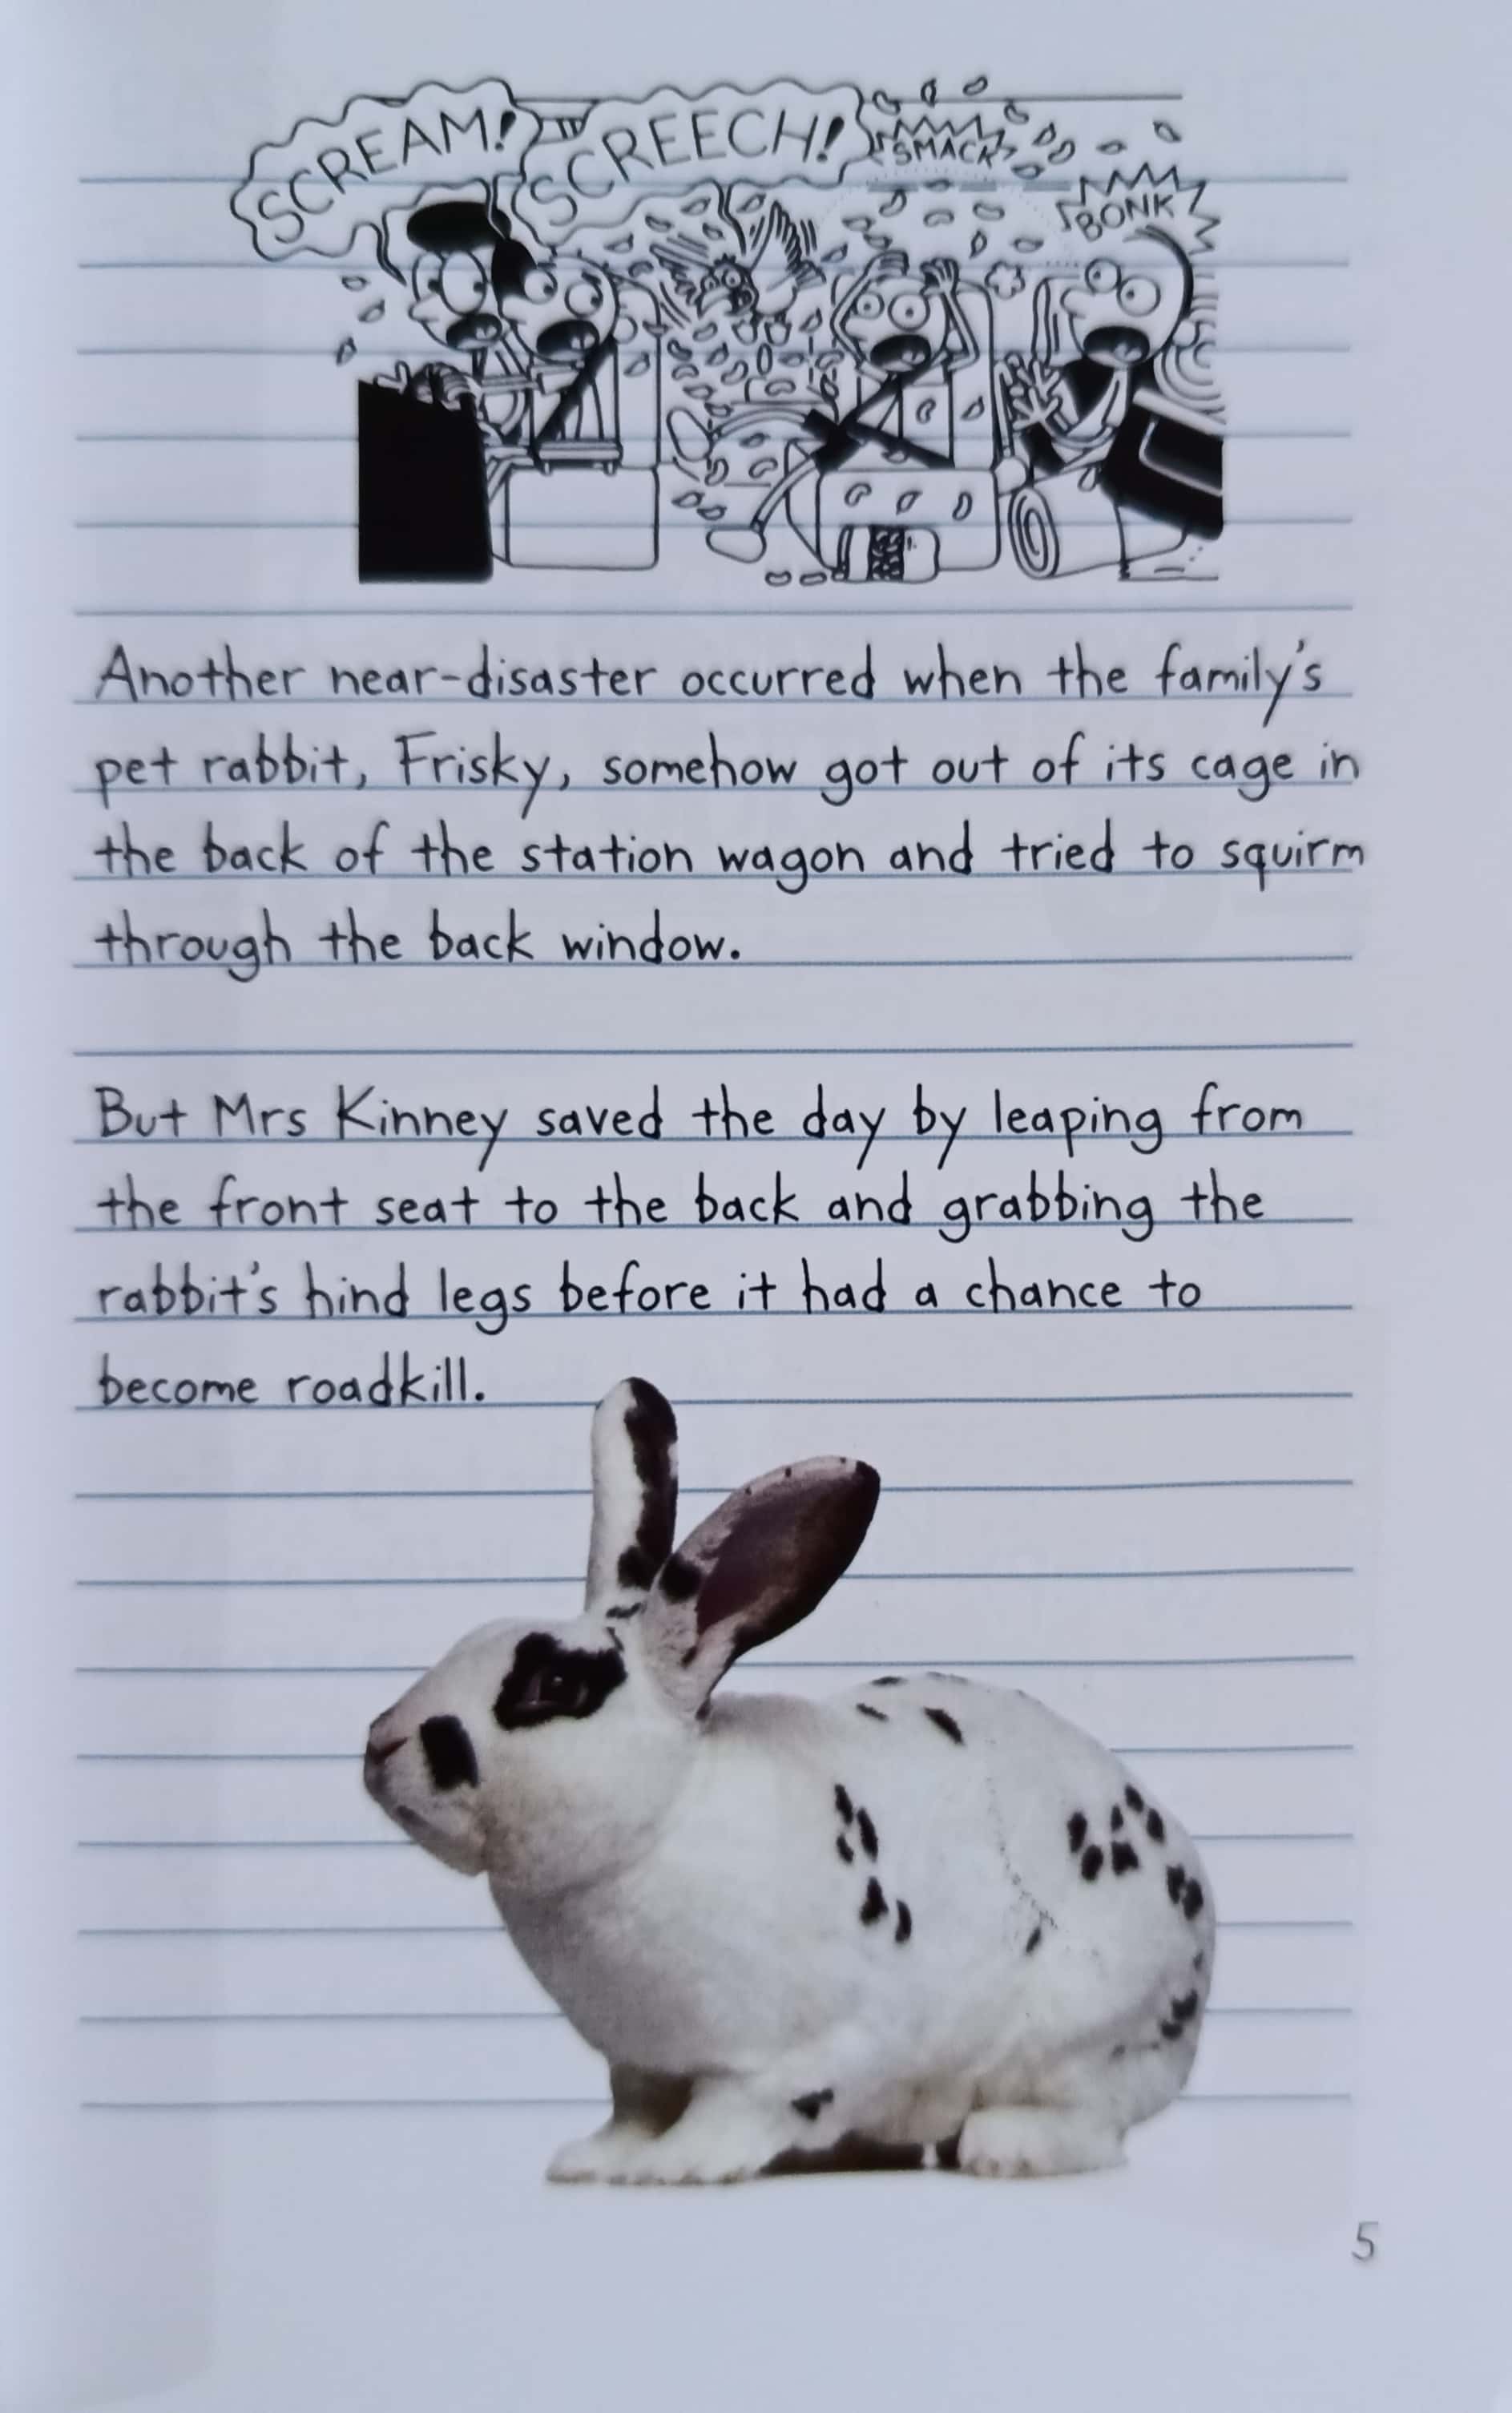 SCREAM!
SCREECH!
SMACK
BONK
Another near-disaster occurred when the family's
pet rabbit, Frisky, somehow got out of its cage in
the back of the station wagon and tried to squirm
through the back window.
But Mrs Kinney saved the day by leaping from
the front seat to the back and grabbing the
rabbit's hind legs before it had a chance to
become roadkill.
5